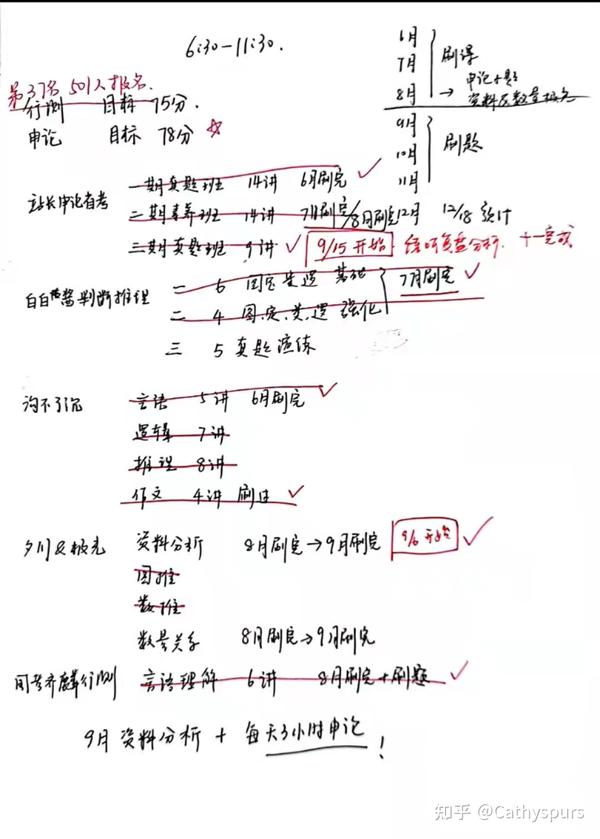 6:30-11:30.
6月
7月
8月
刷课
申论+
资料及数量极先
9月
10月
11月
刷题
第37名 501人报名
行测 目标 75分.
申论 目标 78分
站长申论省考
一期真题班 14讲 6月刷完
二期素养班 14讲 7月刷完/8月刷完12月 12/18 预计
三期真题班 9讲 9/15开始 结明复盘分析. 十一完成
判断推理
一 6 基础 7月刷完
二 4 图.定.类.逻 强化
三 5 真题演练
言语 5讲 6月刷完
逻辑 7讲
推理 8讲
作文 4讲 刷
夕川&极先
资料分析 8月刷完→9月刷完 9/6开始
图推
数推
数量关系 8月刷完→9月刷完
齐麟行测 言语理解 6讲 8月刷完+刷题
9月 资料分析 + 每天3小时申论!
知乎 @Cathyspurs